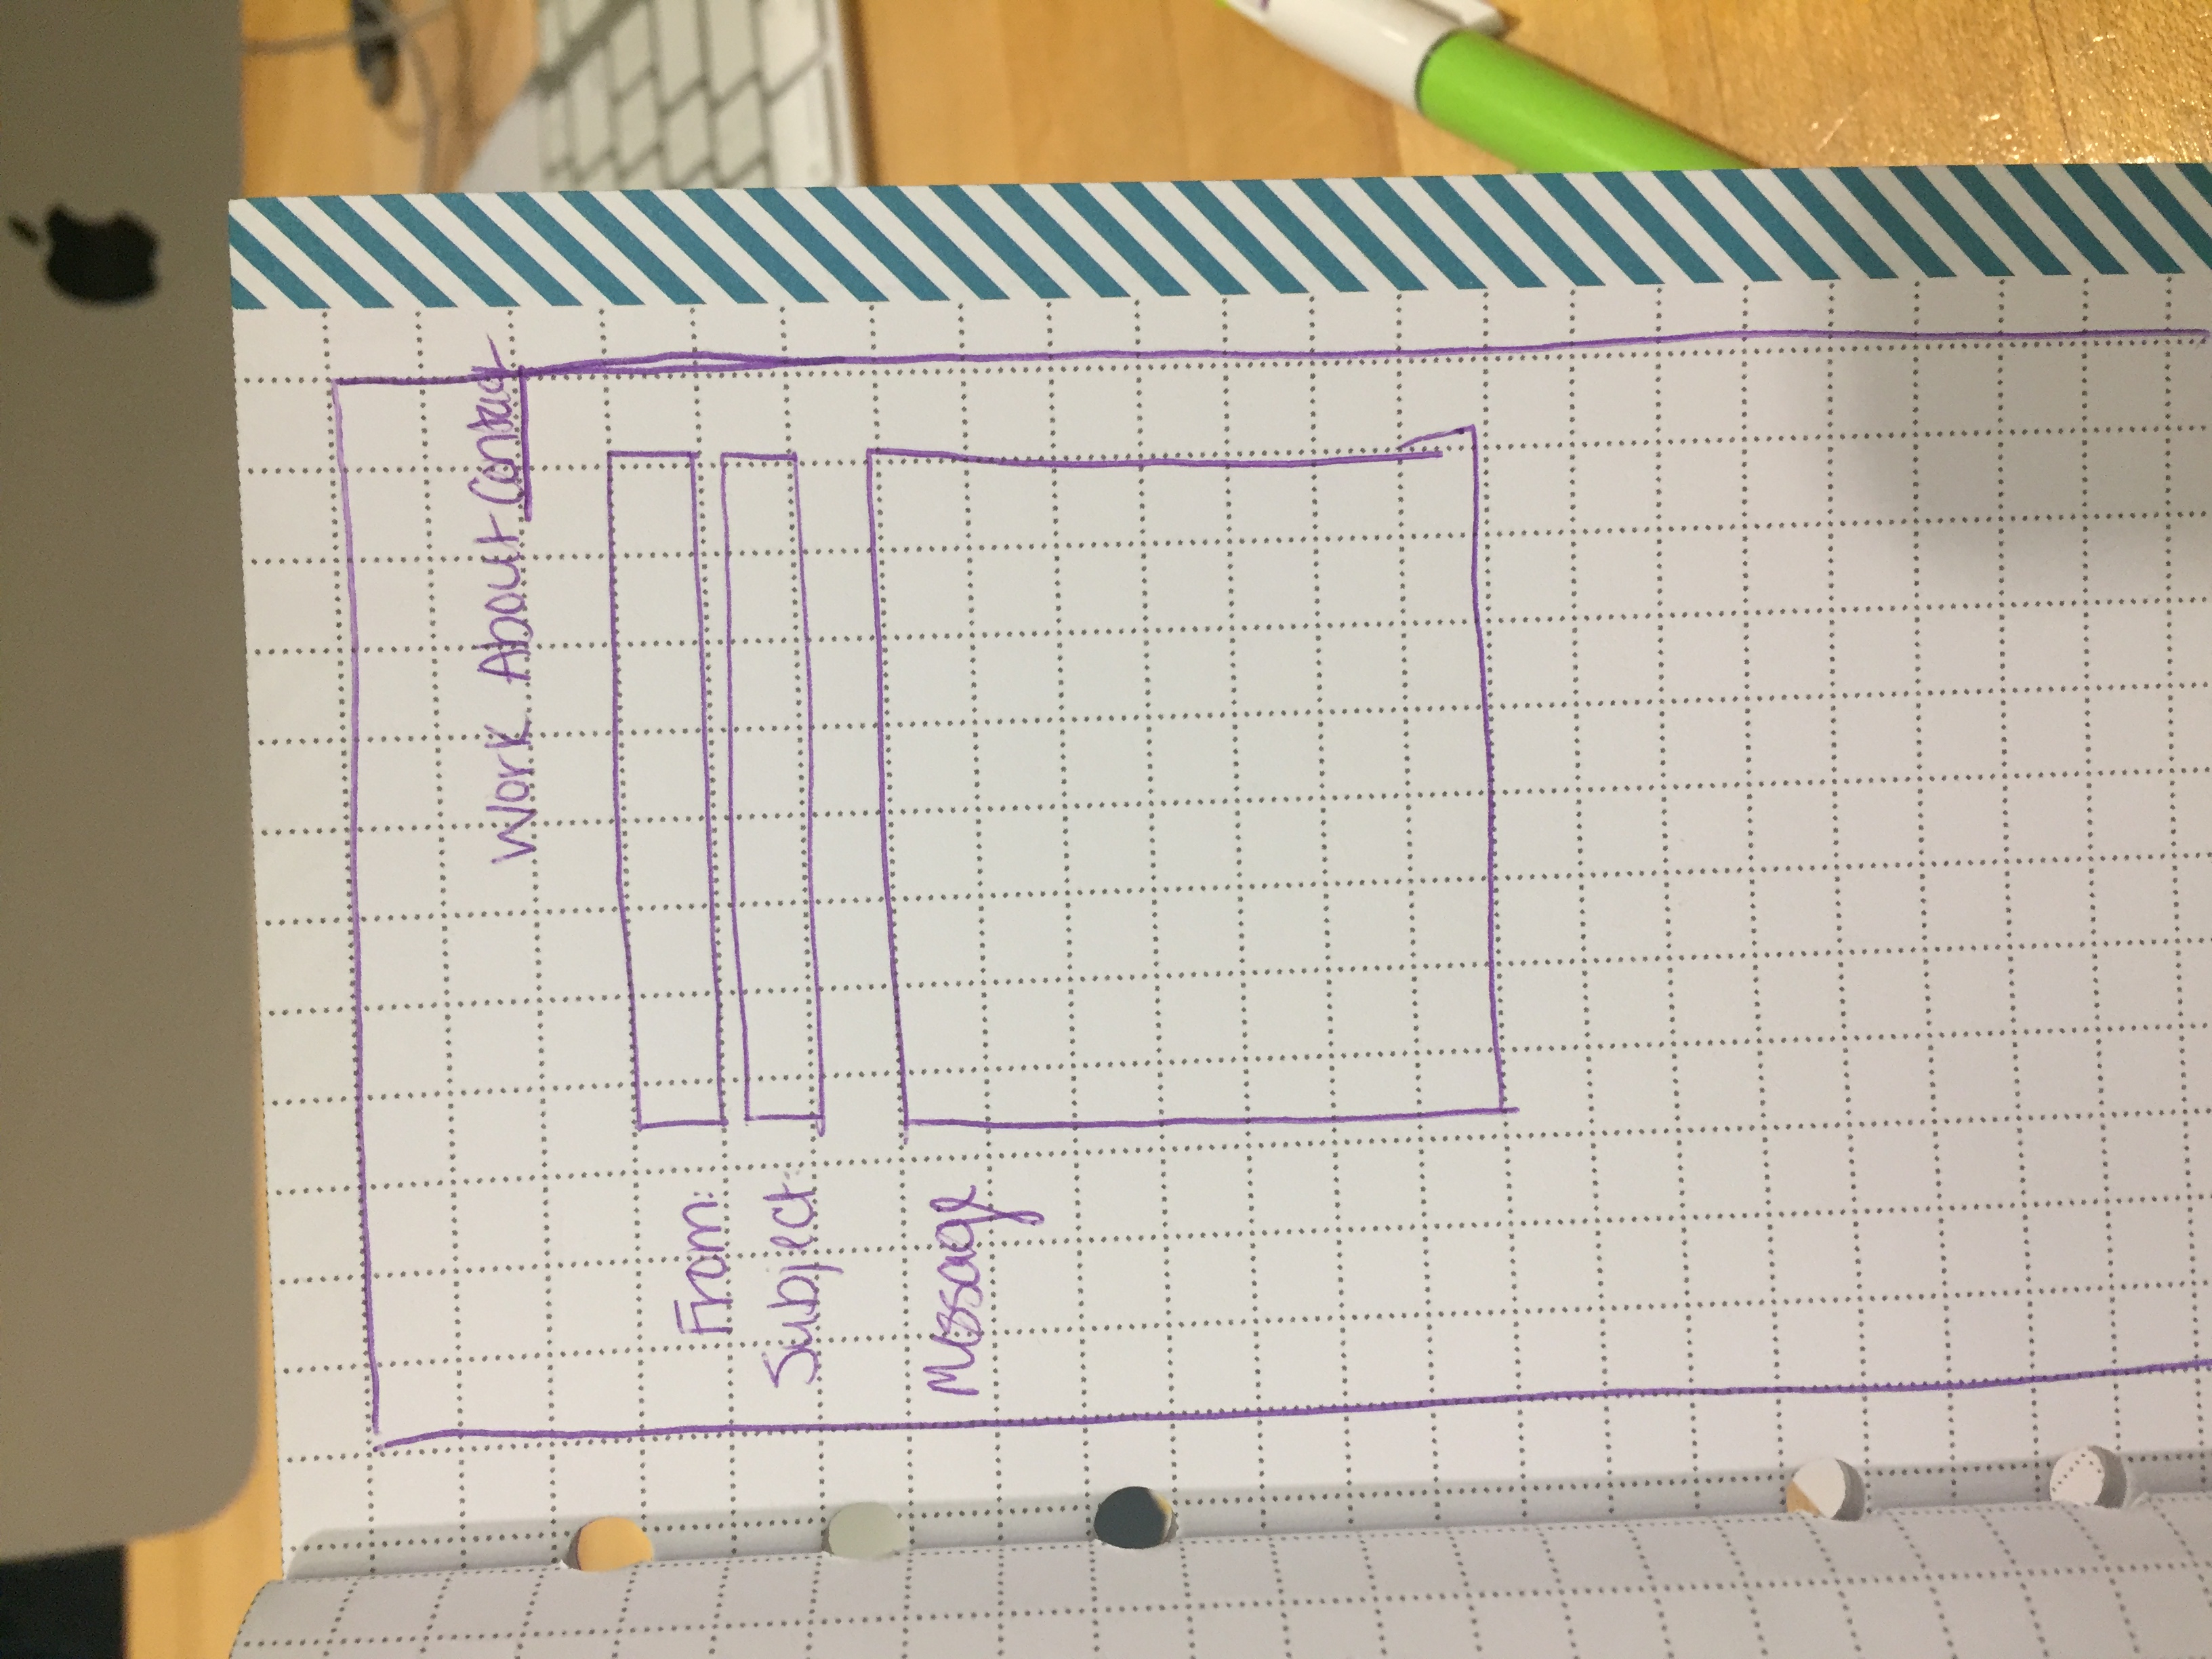 Work About Contact
From:
Subject:
Message